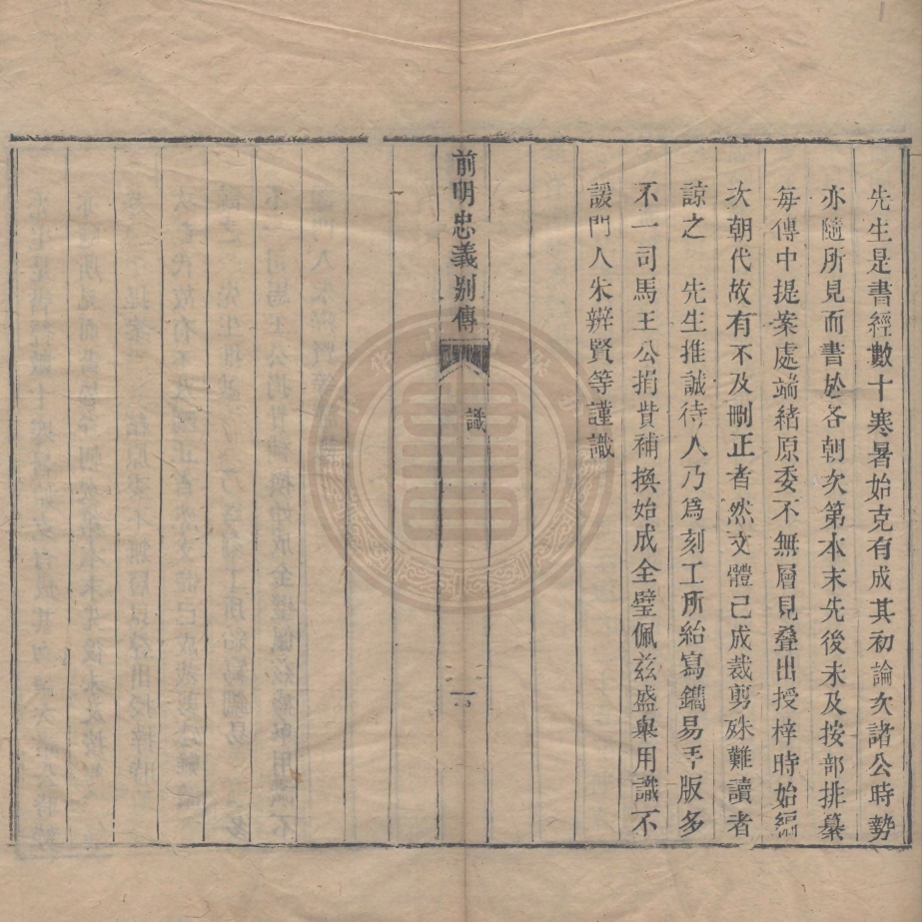 先生是書經數十寒暑始克有成其初論次諸公時勢
亦隨所見而書於各朝次第本末先後未及按部排纂
每傳中提案處端緒原委不無層見叠出授梓時始編
次朝代故有不及刪正者然文體已成裁剪殊難讀者
諒之　先生推誠待人乃爲刻工所紿寫鐫易手版多
不一司馬王公捐貲補換始成全璧佩茲盛舉用識不
諼門人朱辨賢等謹識
前明忠義別傳　識　一